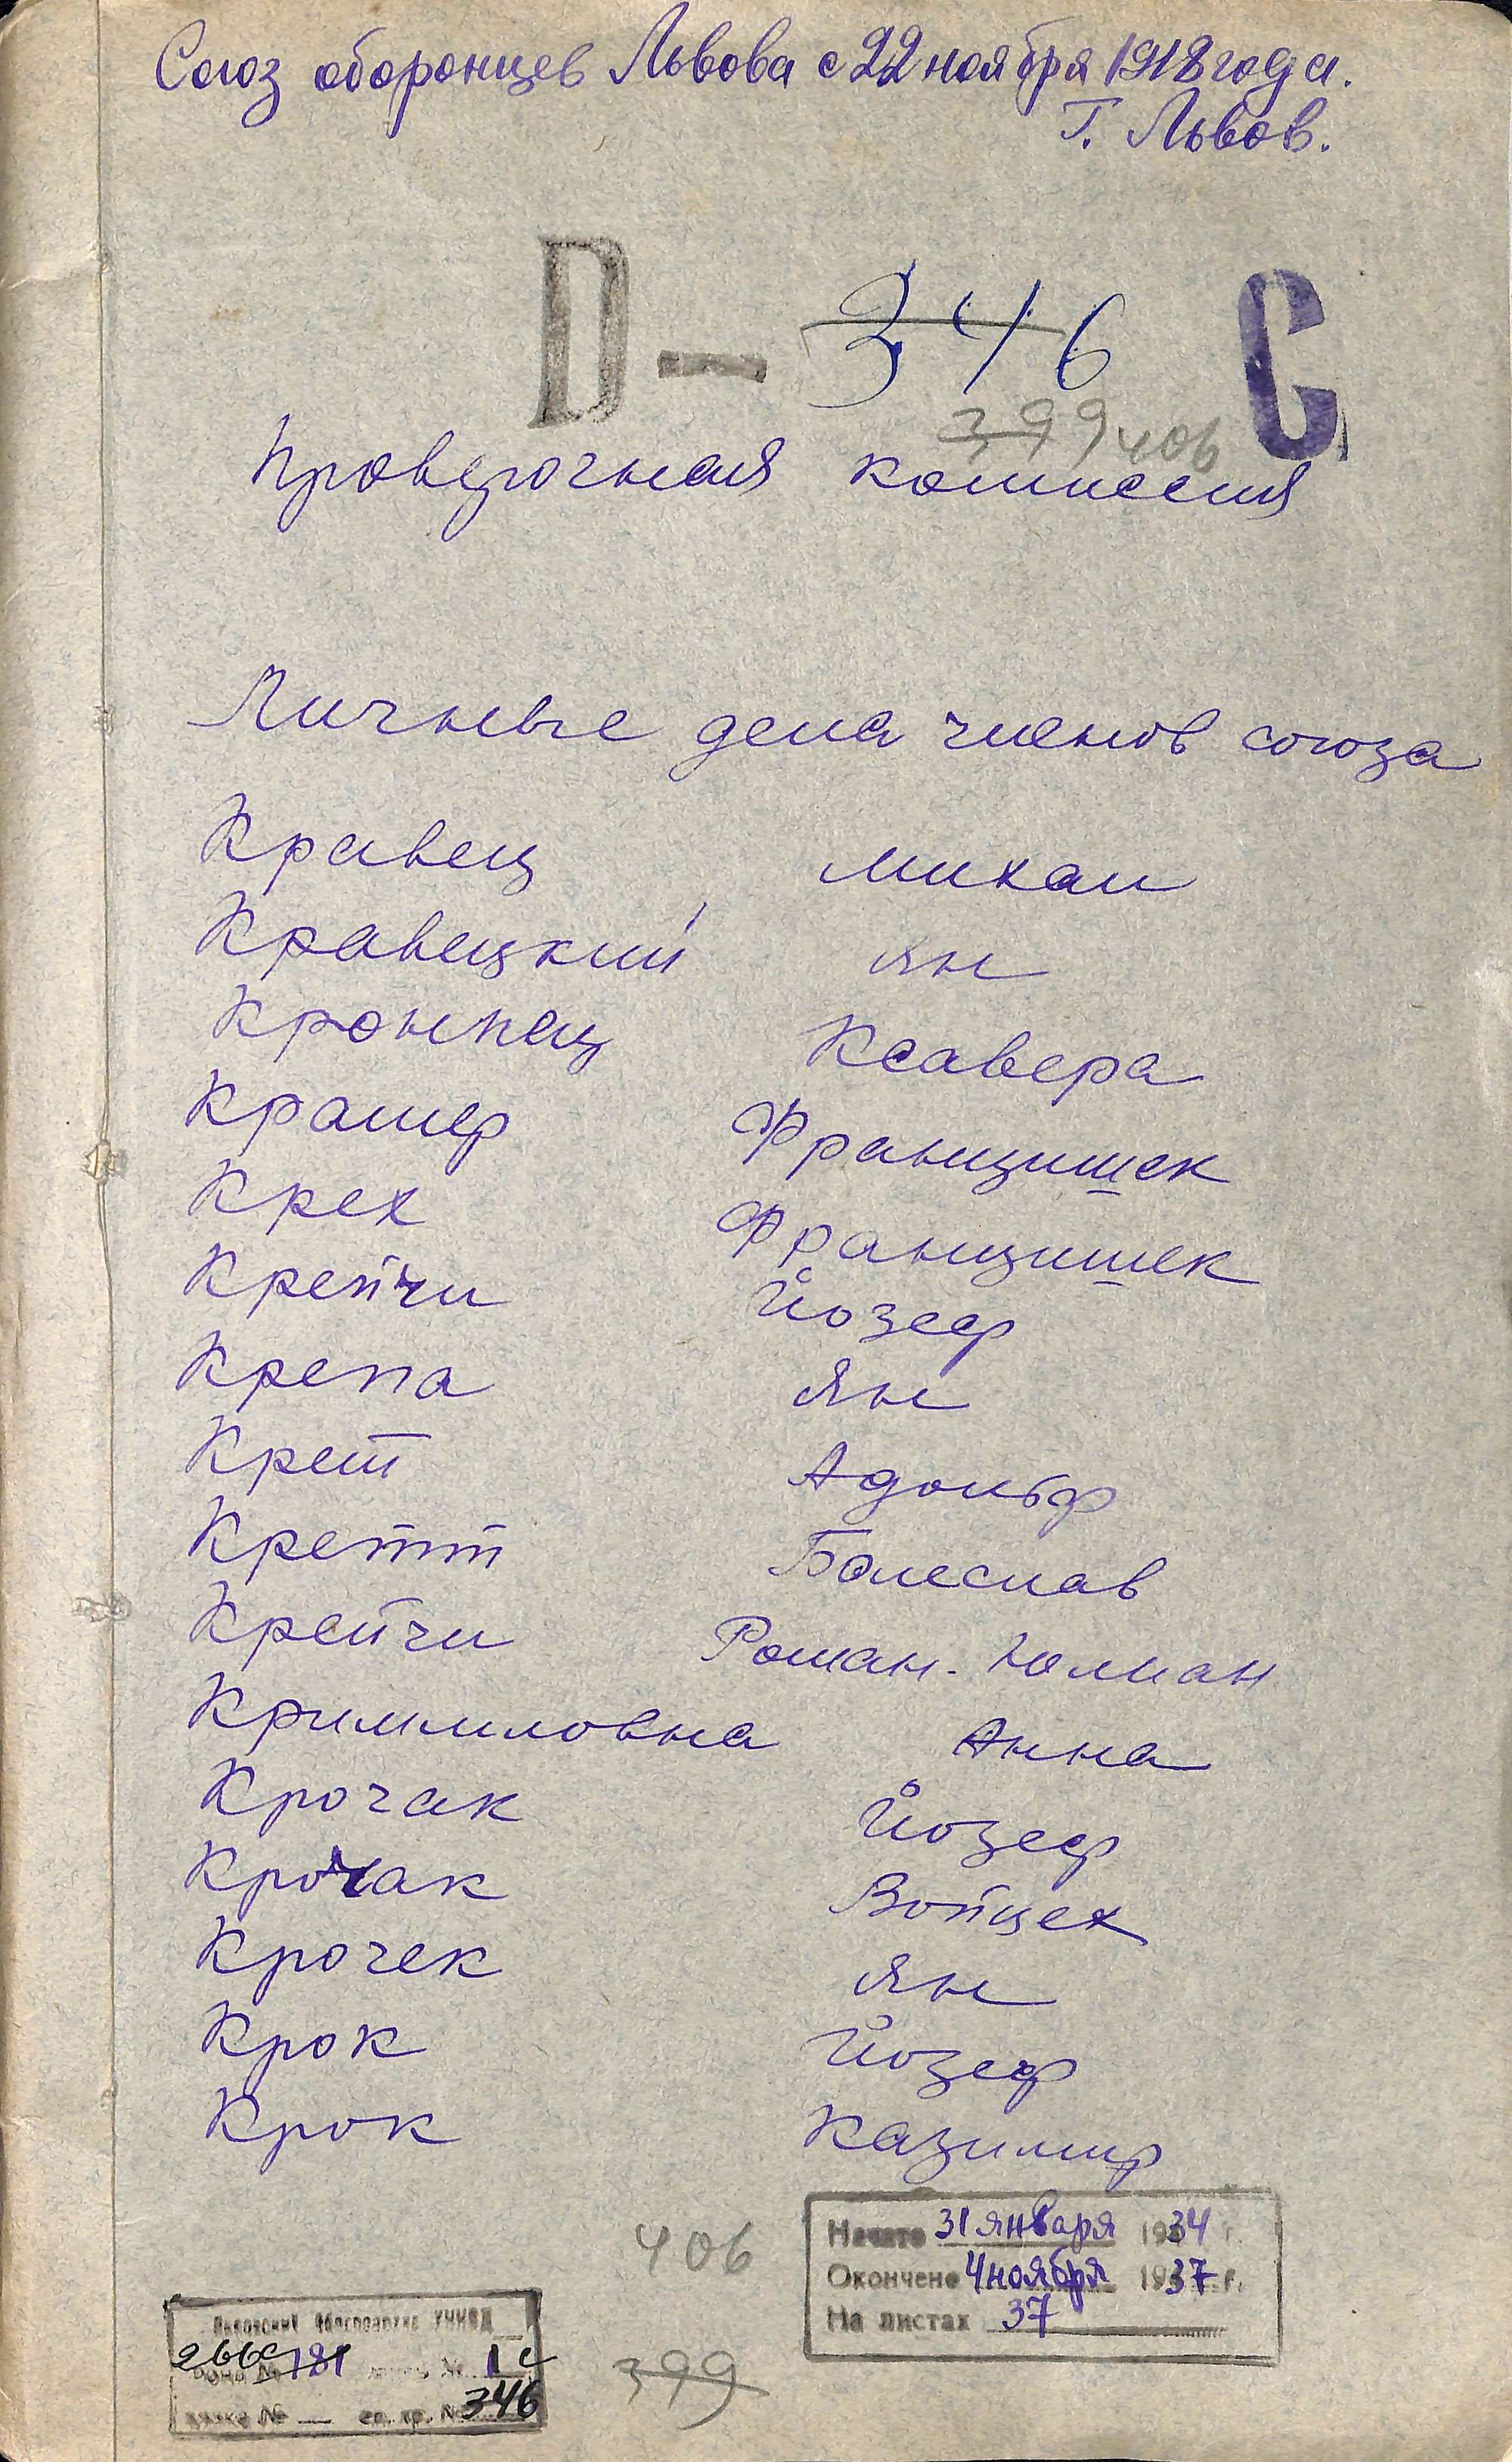 Союз оборонцев Львова с 22 ноября 1918 года.
Г. Львов.
D — 346 C
399 406
Проверочная комиссия
Личные дела членов союза
Кравец Михал
Кравецкий Ян
Кронпец Ксавера
Крамер Францишек
Крех Францишек
Крейчи Йозеф
Крепа Ян
Крет Адольф
Кретт Болеслав
Крейчи Роман-Юлиан
Криммловна Анна
Крочак Йозеф
Крочак Войцех
Крочек Ян
Крок Йозеф
Крок Казимир
406
Начато 31 января 1934 г.
Окончено 4 ноября 1937 г.
На листах 37
Львовский Облгосархив УНКВД
Фонд № 181 № 1с
вязка № — ед. хр. № 346
399